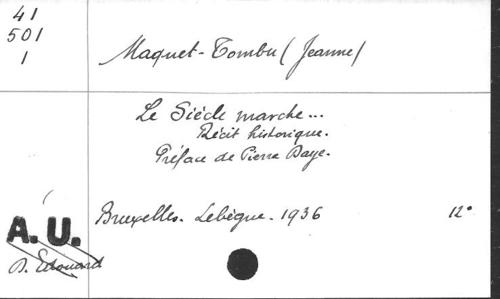 41
501
1
Maquet-Tombu (Jeanne)
Le Siècle marche...
Récit historique.
Préface de Pierre Daye.
Bruxelles. Lebègue. 1936
12°
A. U.
D. Edouard